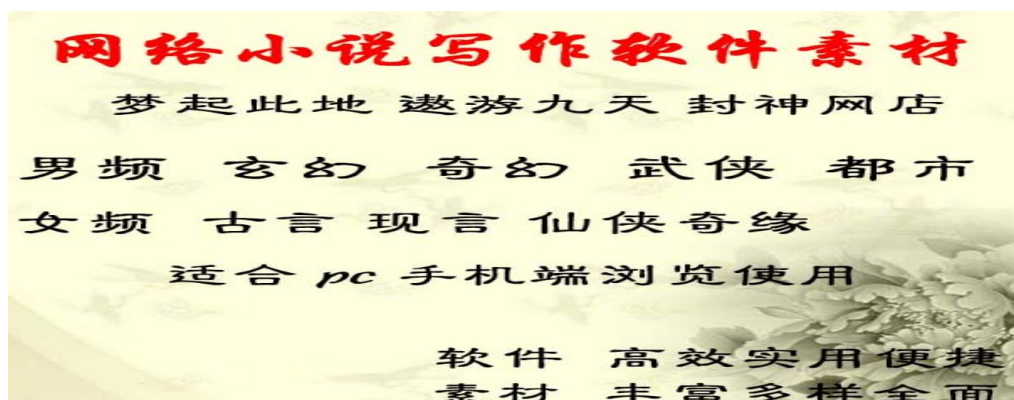 网络小说写作软件素材
梦起此地 遨游九天 封神网店
男频 玄幻 奇幻 武侠 都市
女频 古言 现言 仙侠奇缘
适合 pc 手机端浏览使用
软件 高效实用便捷
素材 丰富多样全面